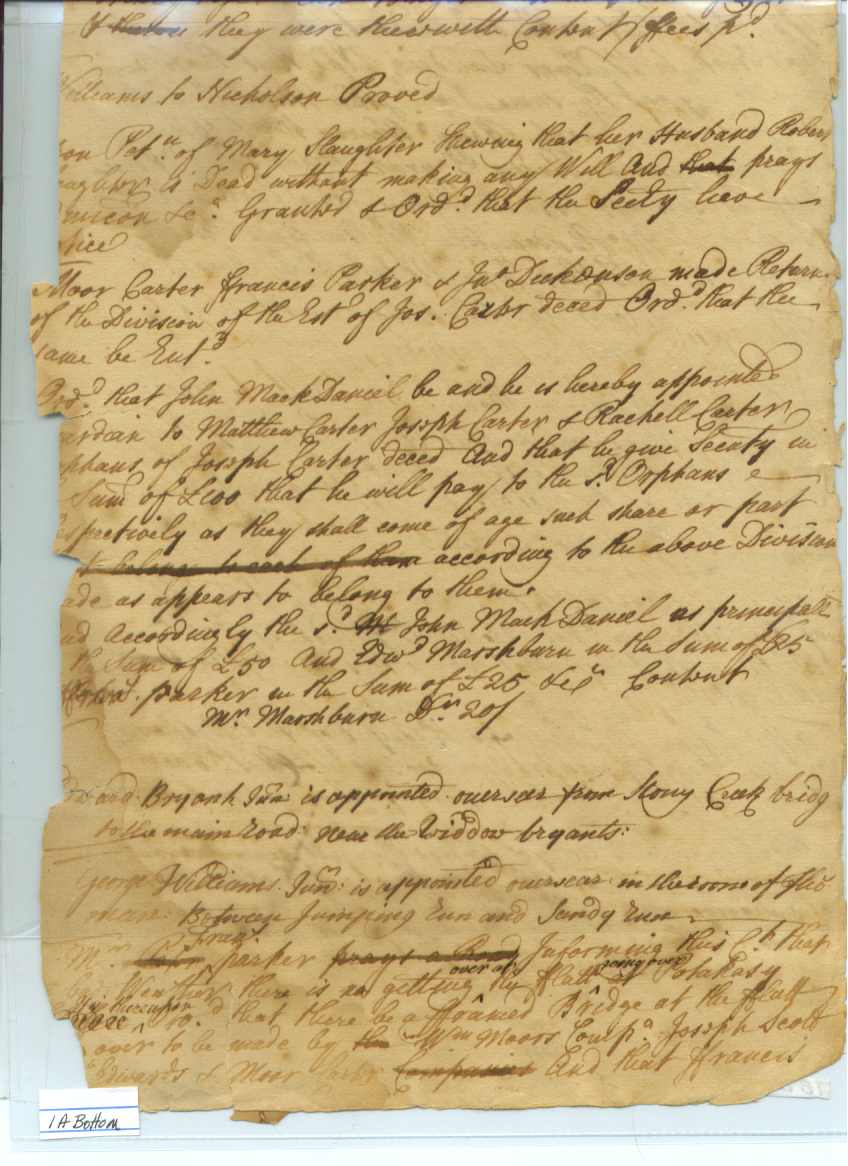 they were therewith Content / ffees pd.
Williams to Nicholson Proved
on Petn. of Mary Slaughter Shewing that her Husband Robert
aughter is Dead without making any Will And that prays
Granted & Ordd. that the Secty have
tice
Moor Carter ffrancis Parker & Jno Dickonson made Return
of the Division of the Est of Jos. Carter deced Ordd. that the
same be Entd.
Ordd. that John MackDaniel be and he is hereby appointed
ardian to Matthew Carter Joseph Carter & Rachell Carter
phans of Joseph Carter deced And that he give Secuty in
Sum of £100 that he will pay to the sd. Orphans
spectively as they shall come of age such share or part
belongs to each of them according to the above Division
ade as appears to belong to them.
nd accordingly the sd. John MackDaniel as principall
the Sum of £50 And Edwd Marshburn in the Sum of £25
parker in the Sum of £25 &ca Content
Mr. Marshburn Dr. 20/
Bryant Junr is appointed overseer from Stony Creek bridg
to the main road near the Widdow bryants:
George Williams Junr: is appointed overseer in the roome of
man: Between Jumping run and Sandy run
Fran:
Mr. parker prays a Road Informing this Ct. that
over at going over
there is no getting the fflatt Potakasy
thereupon
Ord that there be a fframed Bridge at the fflatt
over to be made by the Wm Moors Compa. Joseph Scott
Edwards & Moor Carter Companies And that ffrancis
1A Bottom